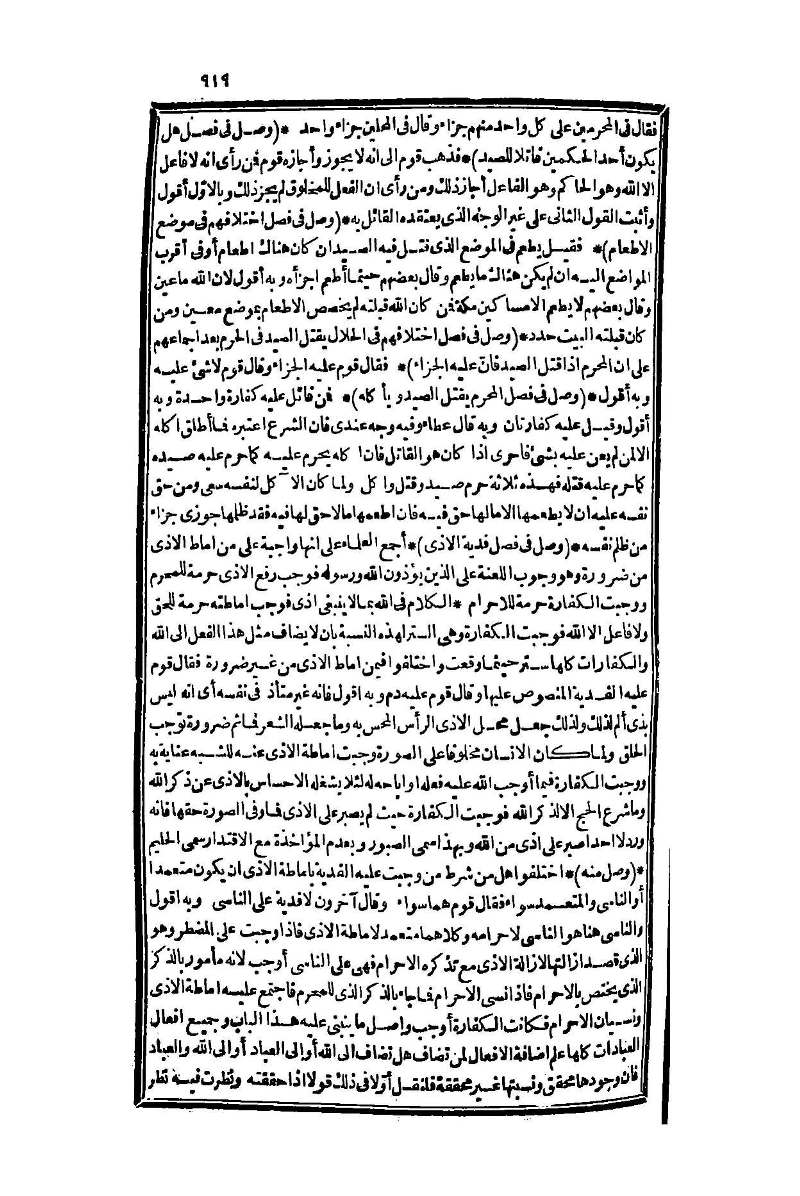 ٩١٩
فقال فى المحرمين على كل واحد منهم جزاء وقال فى المحلين جزاء واحد *(وصل فى فصل هل
يكون أحد الحكمين قاتلا للصيد)* فذهب قوم الى انه لا يجوز وأجازه قوم فن رأى انه لا فاعل
الا الله وهو الحاكم وهو الفاعل أجاز ذلك ومن رأى ان الفعل للمخلوق لم يجز ذلك وبالاول أقول
وأثبت القول الثانى على غير الوجه الذى يعتقده القائل به *(وصل فى فصل اختلافهم فى موضع
الاطعام)* فقيل يطعم فى الموضع الذى قتل فيه الصيد ان كان هناك اطعام أو فى أقرب
المواضع اليه ان لم يكن هنالك ما يطعم وقال بعضهم حيثما أطعم اجزأه وبه أقول لان الله ما عين
وقال بعضهم لا يطعم الا مساكين مكة فن كان الله قبلته لم يخصص الاطعام بموضع معين ومن
كان قبلته البيت حدد *(وصل فى فصل اختلافهم فى الحلال يقتل الصيد فى الحرم بعد اجماعهم
على ان المحرم اذا قتل الصيد فان عليه الجزاء)* فقال قوم عليه الجزاء وقال قوم لا شئ عليه
وبه أقول *(وصل فى فصل المحرم يقتل الصيد ويأكله)* فن قائل عليه كفارة واحدة وبه
أقول وقيل عليه كفارتان وبه قال عطاء وفيه وجه عندى فان الشرع اعتبره فما أطلق اكله
الا لمن لم يعن عليه بشئ فاحرى اذا كان هو القاتل فان اكله يحرم عليه كما حرم عليه صيده
كما حرم عليه قتله فهذه ثلاثة حرم صيد وقتل واكل ولما كان الآكل لنفسه سعى ومن حق
نفسه عليه ان لا يطعمها الا مالها حق فيه فان اطعمها مالا حق لها فيه فقد ظلمها جوزى جزاء
من ظلم نفسه *(وصل فى فصل فدية الاذى)* أجمع العلماء على انها واجبة على من اماط الاذى
من ضرورة وهو وجوب اللعنة على الذين يؤذون الله ورسوله فوجب رفع الاذى حرمة للمحرم
ووجبت الكفارة حرمة للاحرام *الكلام فى الله بما لا ينبغى اذى فوجب اماطته حرمة للحق
ولا فاعل الا الله فوجبت الكفارة وهى الستر لهذه النسبة بان لا يضاف مثل هذا الفعل الى الله
والكفارات كلها ستر حيثما وقعت واختلفوا فيمن اماط الاذى من غير ضرورة فقال قوم
عليه الفدية المنصوص عليها وقال قوم عليه دم وبه اقول فانه غير متأذ فى نفسه أى انه ليس
بذى ألم لذلك ولذلك جعل محل الاذى الرأس المحس به وما جعله الشعر فما ثم ضرورة توجب
الحلق ولما كان الانسان مخلوقا على الصورة وجبت اماطة الاذى عنه للشبه عناية به
ووجبت الكفارة فيما أوجب الله عليه فعله او اباحه له لئلا يشغله الاحساس بالاذى عن ذكر الله
وما شرع الحج الا لذكر الله فوجبت الكفارة حيث لم يصبر على الاذى فما وفى الصورة حقها فانه
ورد لا احد اصبر على اذى من الله وبهذا سمى الصبور وبعدم المؤاخذة مع الاقتدار سمى الحليم
*(وصل منه)* اختلفوا هل من شرط من وجبت عليه الفدية باماطة الاذى ان يكون متعمدا
أو الناسى والمتعمد سواء فقال قوم هما سواء وقال آخرون لا فدية على الناسى وبه اقول
والناسى هنا هو الناسى لاحرامه وكلاهما متعمد لاماطة الاذى فاذا وجبت على المضطر وهو
الذى قصد ازالتها لازالة الاذى مع تذكره الاحرام فهى على الناسى أوجب لانه مأمور بالذكر
الذى يختص بالاحرام فاذا نسى الاحرام فما جاء بالذكر الذى للمحرم فاجتمع عليه اماطة الاذى
ونسيان الاحرام فكانت الكفارة أوجب واصل ما ينبنى عليه هذا الباب وجميع افعال
العبادات كلها علم اضافة الافعال لمن تضاف هل تضاف الى الله أو الى العباد أو الى الله والعباد
فان وجودها محقق ونسبتها غير محققة فلنقل أولا فى ذلك قولا اذا حققته ونظرت فيه نظر